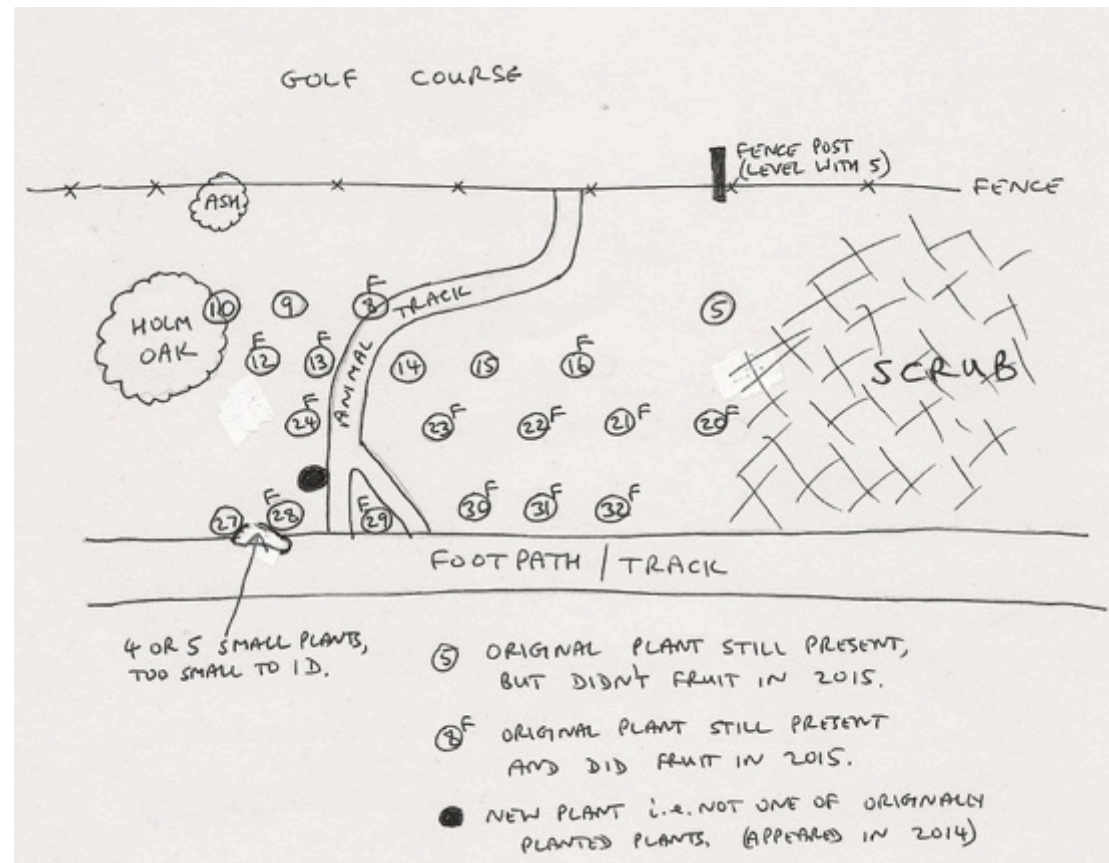 GOLF COURSE
FENCE POST
(LEVEL WITH 5)
FENCE
ASH
HOLM
OAK
10 9 8 F 5
ANIMAL TRACK
12 F 13 F 14 15 16 F
SCRUB
24 F 23 F 22 F 21 F 20 F
27 28 F 29 F 30 F 31 F 32 F
FOOTPATH / TRACK
4 OR 5 SMALL PLANTS,
TOO SMALL TO ID.
5 ORIGINAL PLANT STILL PRESENT,
BUT DIDN'T FRUIT IN 2015.
8 F ORIGINAL PLANT STILL PRESENT
AND DID FRUIT IN 2015.
NEW PLANT i.e. NOT ONE OF ORIGINALLY
PLANTED PLANTS. (APPEARED IN 2014)